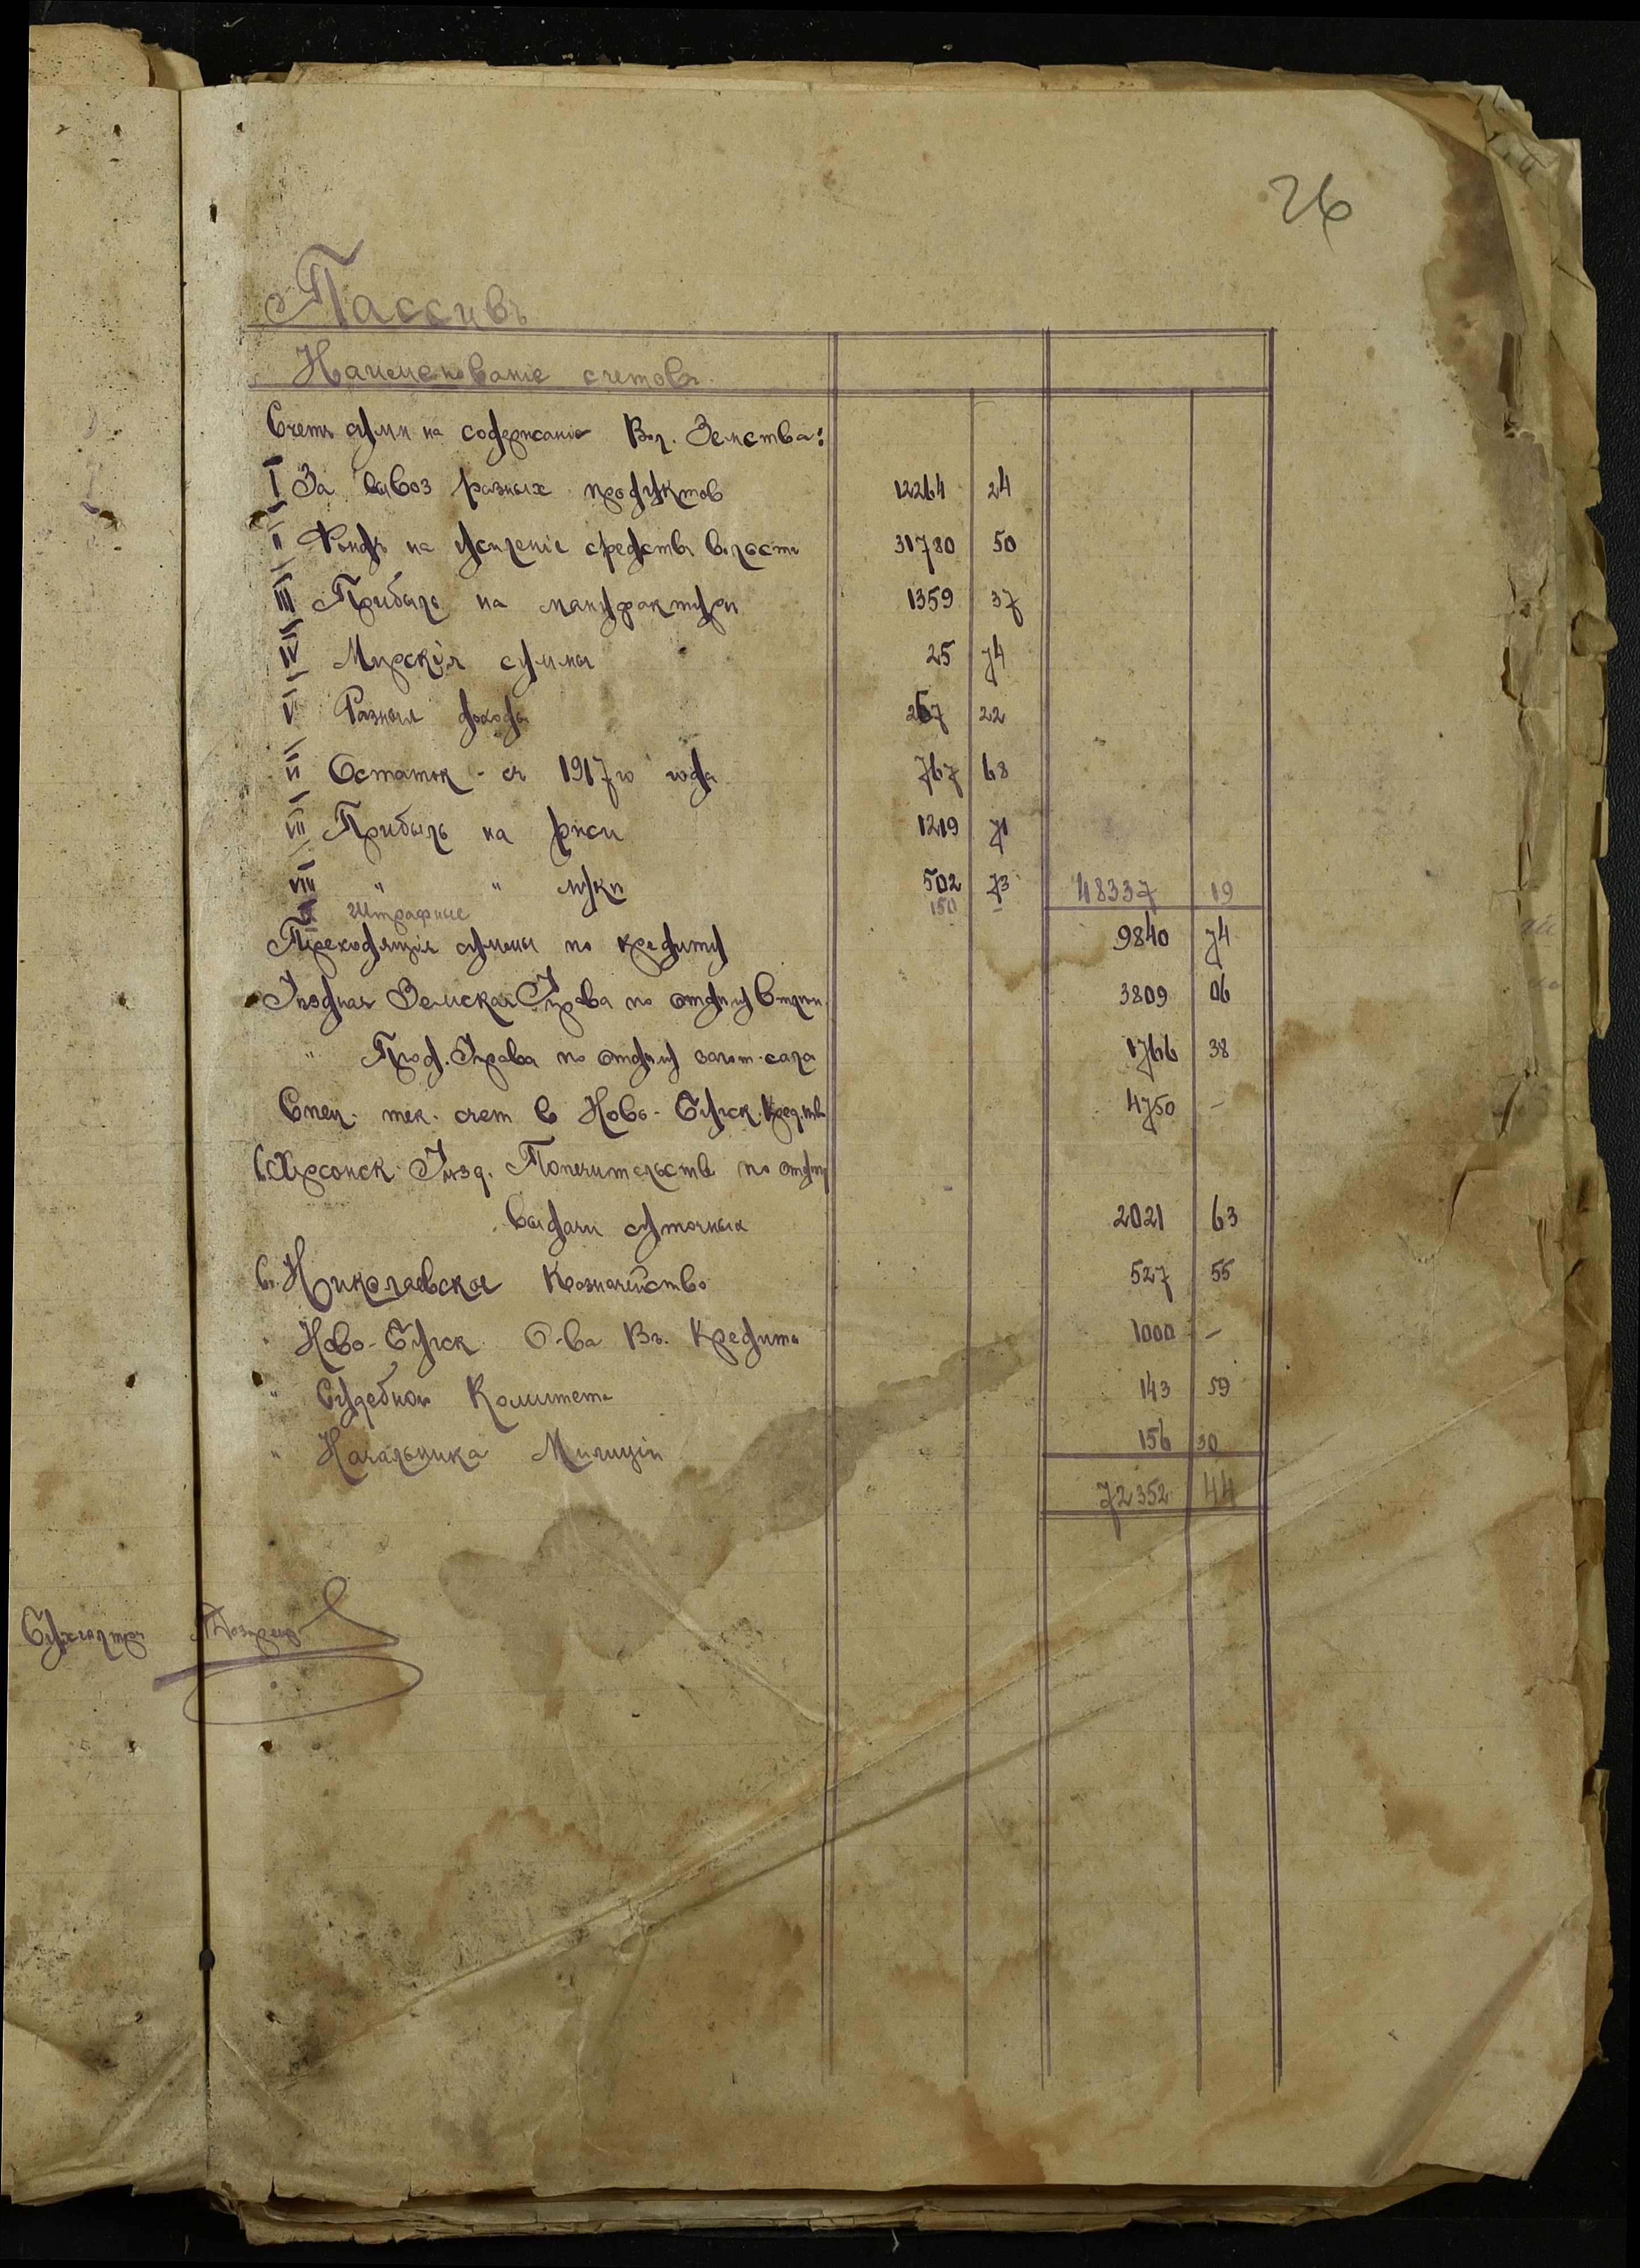 26
Пассивъ
Наименованіе счетовъ.
Счетъ сумм на содержаніе Вол. Земства:
I За вывоз разных продуктов 12264 24
II Фондъ на усиленіе средствъ волости 31780 50
III Прибыль на мануфактури 1359 37
IV Мирскія суммы 25 74
V Разныя доходы 267 22
VI Остаток - съ 1917 го года 767 68
VII Прибыль на ржи 1219 71
VIII " " муки 502 73 48337 19
IX Штрафные 150 —
Преходящія суммы по кредиту 9840 74
Уездная Земская Управа по отделу 3809 06
" Прод. Управа по отделу загот. сала 1766 38
Спец. тек. счет в Ново-Бугск. Кред. тв 4750 —
в. Херсонск. Уезд. Попечительств по отделу
выдачи суточных 2021 63
въ Николаевское Казначейство 527 55
" Ново-Бугск О-ва Вз. Кредита 1000 —
" Судебном Комитета 143 59
" Начальника Милиціи 156 30
72352 44
Бухгалтер